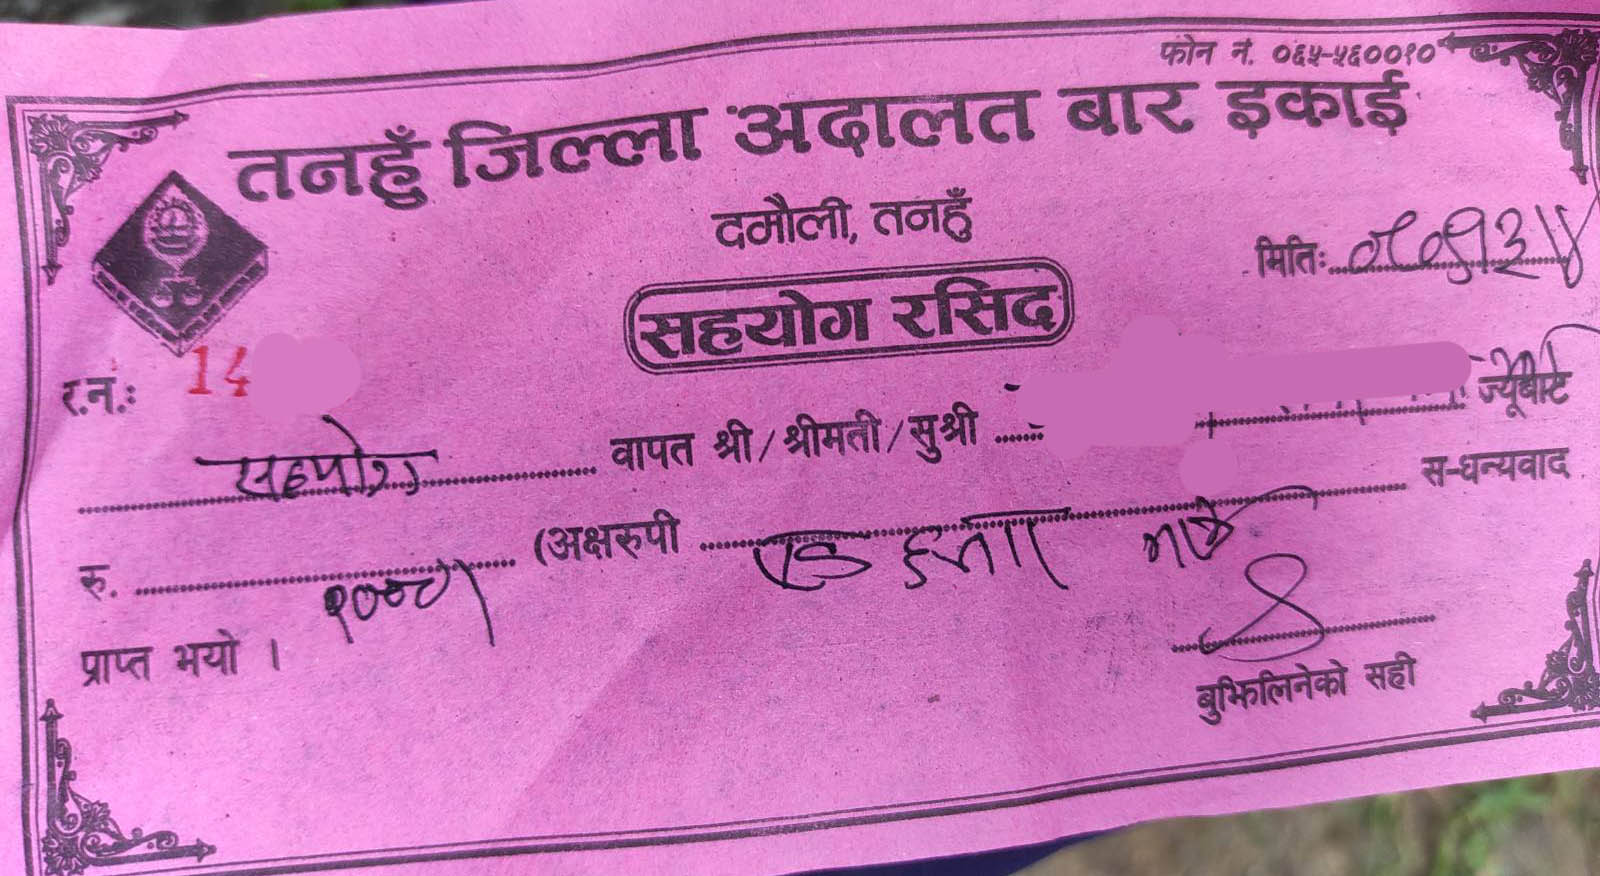 फोन नं. ०६५-५६००१०
तनहुँ जिल्ला अदालत बार इकाई
दमौली, तनहुँ
मितिः
सहयोग रसिद
र.नं.: 14
सहयोग वापत श्री/श्रीमती/सुश्री ज्यूबाट
स-धन्यवाद
रु. १०००/ (अक्षरुपी एक हजार मात्र
प्राप्त भयो ।
बुझिलिनेको सही